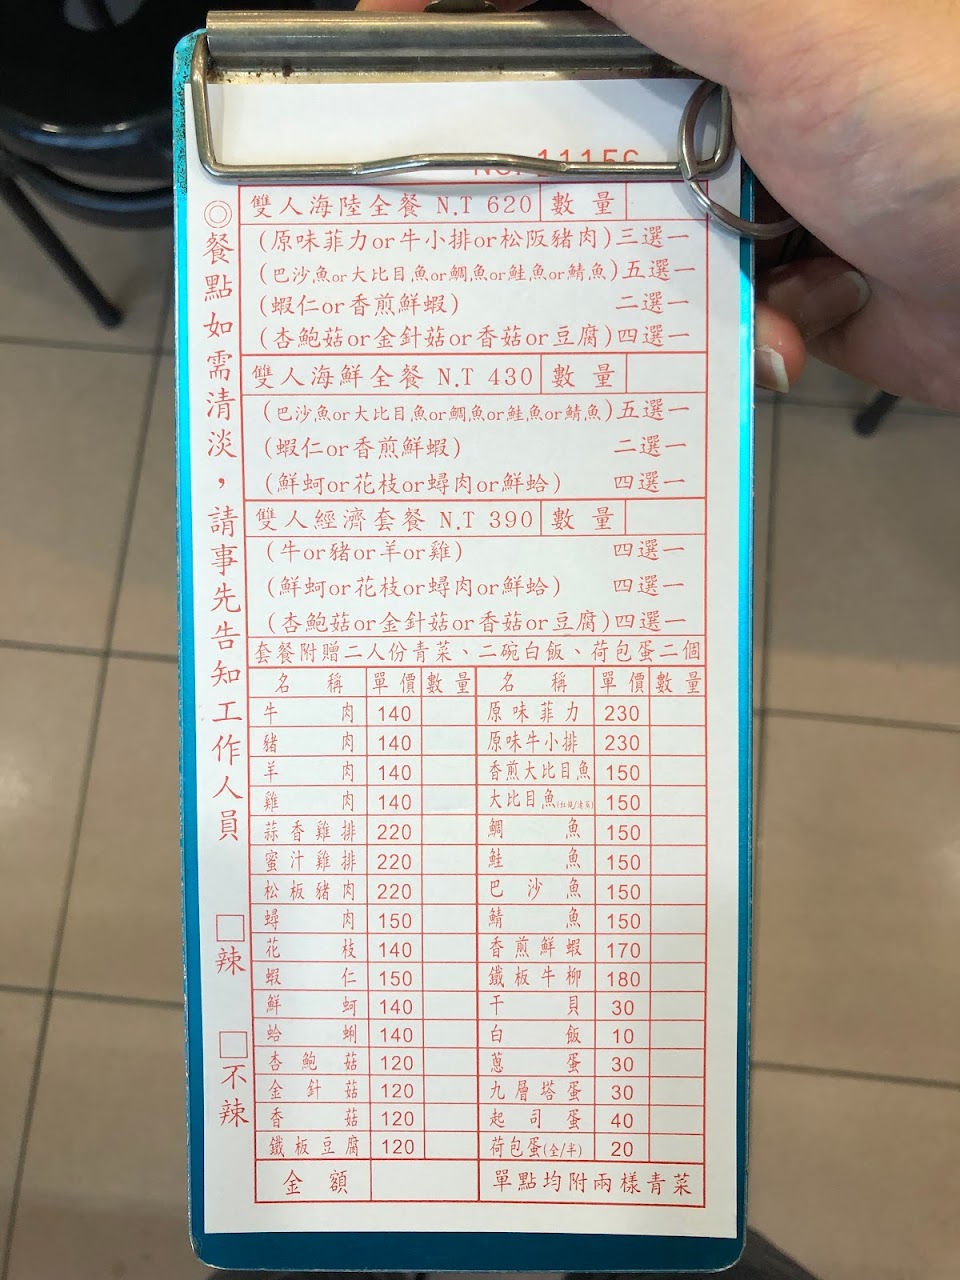 No. 11156
◎餐點如需清淡，請事先告知工作人員
□辣
□不辣
雙人海陸全餐 N.T 620 數量
(原味菲力or牛小排or松阪豬肉)三選一
(巴沙魚or大比目魚or鯛魚or鮭魚or鯖魚)五選一
(蝦仁or香煎鮮蝦) 二選一
(杏鮑菇or金針菇or香菇or豆腐)四選一
雙人海鮮全餐 N.T 430 數量
(巴沙魚or大比目魚or鯛魚or鮭魚or鯖魚)五選一
(蝦仁or香煎鮮蝦) 二選一
(鮮蚵or花枝or蟳肉or鮮蛤) 四選一
雙人經濟套餐 N.T 390 數量
(牛or豬or羊or雞) 四選一
(鮮蚵or花枝or蟳肉or鮮蛤) 四選一
(杏鮑菇or金針菇or香菇or豆腐)四選一
套餐附贈二人份青菜、二碗白飯、荷包蛋二個
名稱 單價 數量 名稱 單價 數量
牛肉 140 原味菲力 230
豬肉 140 原味牛小排 230
羊肉 140 香煎大比目魚 150
雞肉 140 大比目魚 150
蒜香雞排 220 鯛魚 150
蜜汁雞排 220 鮭魚 150
松板豬肉 220 巴沙魚 150
蟳肉 150 鯖魚 150
花枝 140 香煎鮮蝦 170
蝦仁 150 鐵板牛柳 180
鮮蚵 140 干貝 30
蛤蜊 140 白飯 10
杏鮑菇 120 蔥蛋 30
金針菇 120 九層塔蛋 30
香菇 120 起司蛋 40
鐵板豆腐 120 荷包蛋(全/半) 20
金額 單點均附兩樣青菜